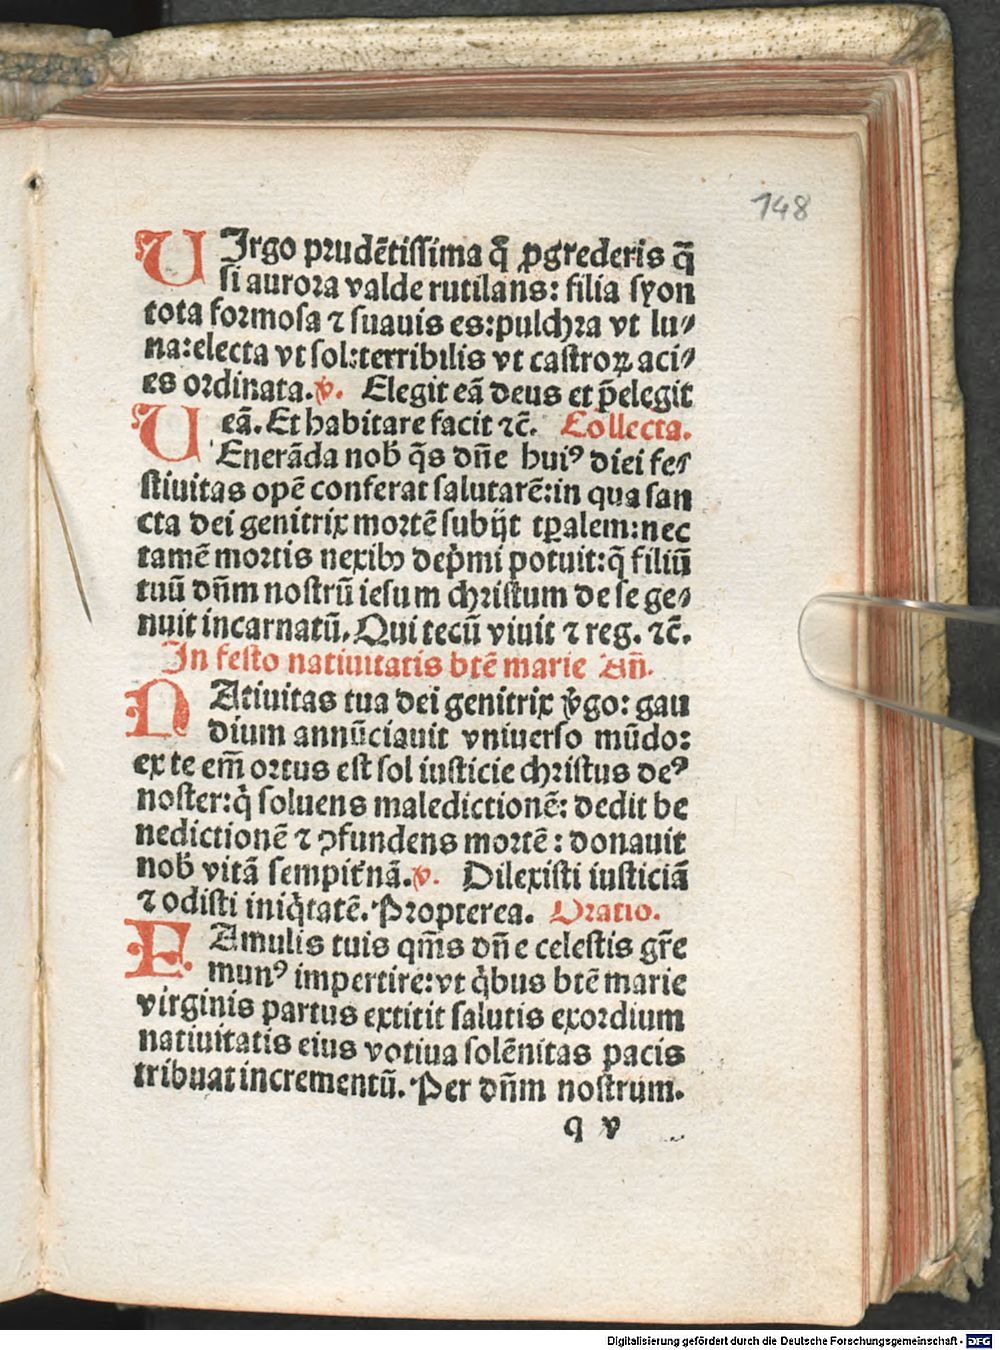 148
UIrgo prudētissima q̄ ꝓgrederis q̄
si aurora valde rutilans: filia syon
tota formosa ⁊ suauis es: pulchra vt lu⸗
na: electa vt sol: terribilis vt castroꝝ aci⸗
es ordinata. ℣. Elegit eā deus et p̄elegit
eā. Et habitare facit ⁊c̄. Collecta.
UEnerāda nob̓ q̄s dn̄e huiꝰ diei fes
stiuitas opē conferat salutarē: in qua san
cta dei genitrix mortē subijt tꝑalem: nec
tamē mortis nexibꝫ dep̓mi potuit: q̄ filiū
tuū dn̄m nostrū iesum christum de se ge⸗
nuit incarnatū. Qui tecū viuit ⁊ reg. ⁊c̄.
In festo natiuitatis btē marie Añ.
NAtiuitas tua dei genitrix v̓go: gau
dium annūciauit vniuerso mūdo:
ex te em̄ ortus est sol iusticie christus deꝰ
noster: q̓ soluens maledictionē: dedit be
nedictionē ⁊ ꝯfundens mortē: donauit
nob̓ vitā sempit̓nā. ℣. Dilexisti iusticiā
⁊ odisti iniq̓tatē. Propterea. Oratio.
FAmulis tuis qm̄s dn̄e celestis gr̄e
munꝰ impertire: vt q̓bus btē marie
virginis partus extitit salutis exordium
natiuitatis eius votiua solēnitas pacis
tribuat incrementū. Per dn̄m nostrum.
q v
Digitalisierung gefördert durch die Deutsche Forschungsgemeinschaft - DFG